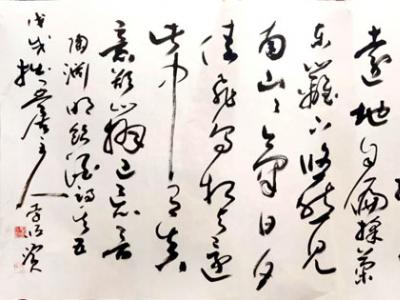 遠地自偏採菊
東籬下悠然見
南山〻氣日夕
佳飛鳥相與還
此中有真
意欲辨已忘言
陶淵明飲酒詩其五
戊戌主人